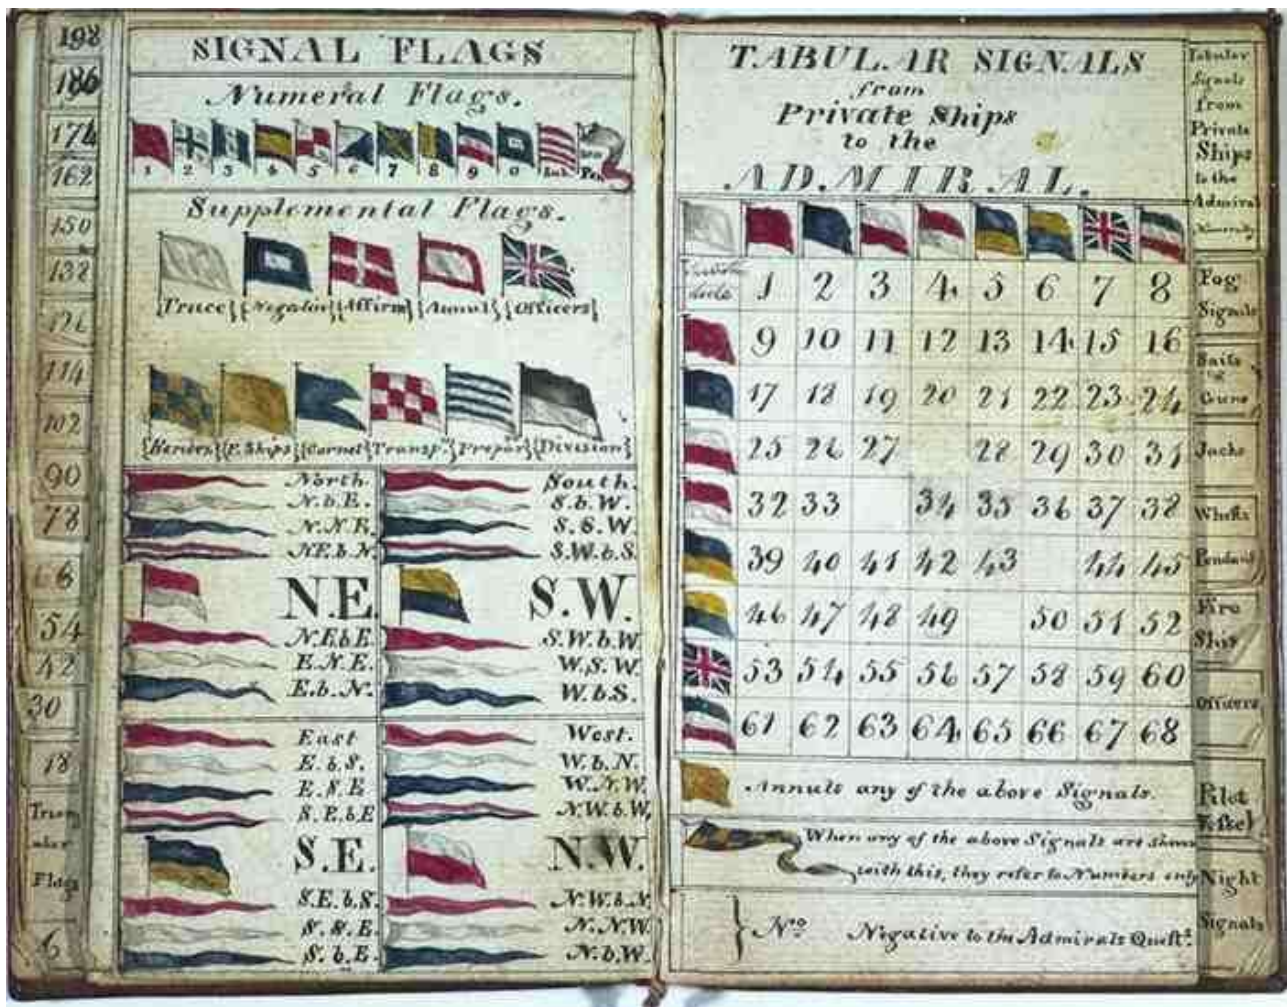 198
186
174
162
150
138
126
114
102
90
78
54
42
30
18
Flags
6
SIGNAL FLAGS
Numeral Flags.
1 2 3 4 5 6 7 8 9 0 Sub. Pen
Supplemental Flags.
Truce Negative Affirm Annul Officers
P. Ships Cornet Transp. Prepar Division
North.
N.b.E.
N.N.E.
NE.b.N.
N.E.
N.E.b.E.
E.N.E.
E.b.N.
South.
S.b.W.
S.S.W.
S.W.b.S.
S.W.
S.W.b.W.
W.S.W.
W.b.S.
East
E.b.S.
E.S.E
S.E.b.E
S.E.
S.E.b.S.
S.S.E.
S.b.E.
West.
W.b.N.
W.N.W.
N.W.b.W.
N.W.
N.W.b.N.
N.NW.
N.b.W.
TABULAR SIGNALS
from
Private Ships
to the
ADMIRAL.
1 2 3 4 5 6 7 8
9 10 11 12 13 14 15 16
17 18 19 20 21 22 23 24
25 26 27 28 29 30 31
32 33 34 35 36 37 38
39 40 41 42 43 44 45
46 47 48 49 50 51 52
53 54 55 56 57 58 59 60
61 62 63 64 65 66 67 68
Annuls any of the above Signals.
When any of the above Signals are shewn
with this, they refer to Numbers only
No Negative to the Admirals Quest.
Tabular
Signals
from
Private
Ships
to the
Admiral
Fog
Signals
Sails
&
Guns
Jacks
Whefts
Pendant
Fire
Ship
Officers
Pilot
Night
Signals